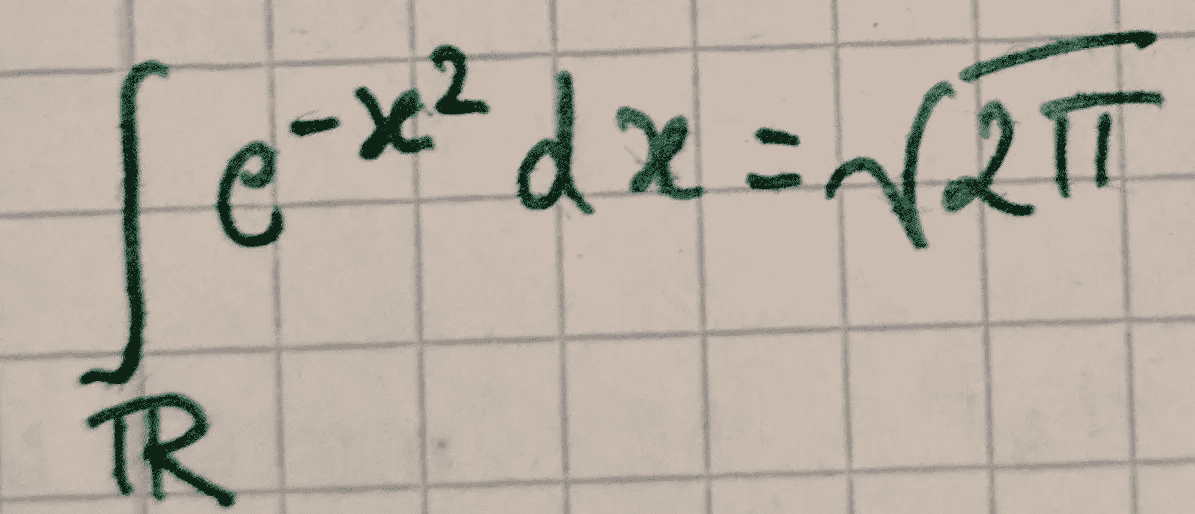 ∫_ℝ e^{-x^2} dx = √(2π)